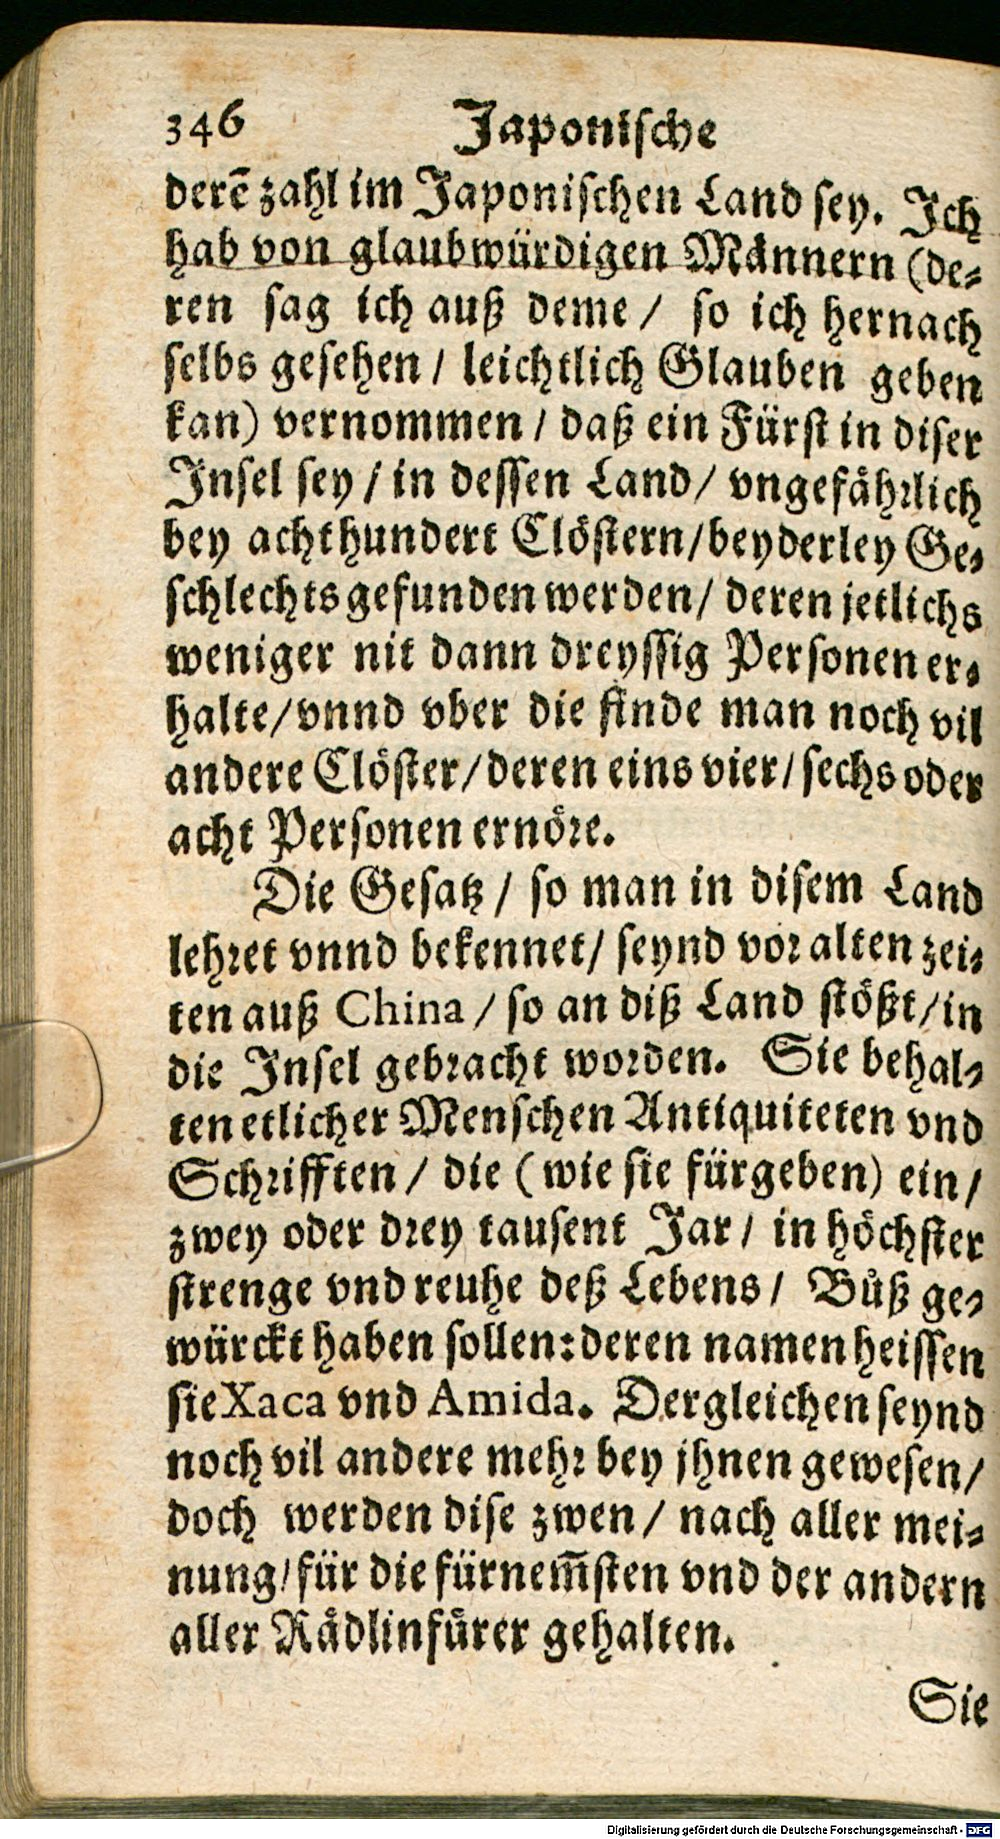 346 Japonische
derē zahl im Japonischen Land sey. Ich
hab von glaubwürdigen Männern (de-
ren sag ich auß deme / so ich hernach
selbs gesehen / leichtlich Glauben geben
kan) vernommen / daß ein Fürst in diser
Insel sey / in dessen Land / vngefährlich
bey achthundert Clöstern / beyderley Ge-
schlechts gefunden werden / deren jetlichs
weniger nit dann dreyssig Personen er-
halte / vnnd vber die finde man noch vil
andere Clöster / deren eins vier / sechs oder
acht Personen ernöre.
Die Gesatz / so man in disem Land
lehret vnnd bekennet / seynd vor alten zei-
ten auß China / so an diß Land stößt / in
die Insel gebracht worden. Sie behal-
ten etlicher Menschen Antiquiteten vnd
Schrifften / die (wie sie fürgeben) ein /
zwey oder drey tausent Jar / in höchster
strenge vnd reuhe deß Lebens / Bůß ge-
würckt haben sollen: deren namen heissen
sie Xaca vnd Amida. Dergleichen seynd
noch vil andere mehr bey jhnen gewesen /
doch werden dise zwen / nach aller mei-
nung / für die fürnem̄sten vnd der andern
aller Rädlinfürer gehalten.
Sie
Digitalisierung gefördert durch die Deutsche Forschungsgemeinschaft - DFG